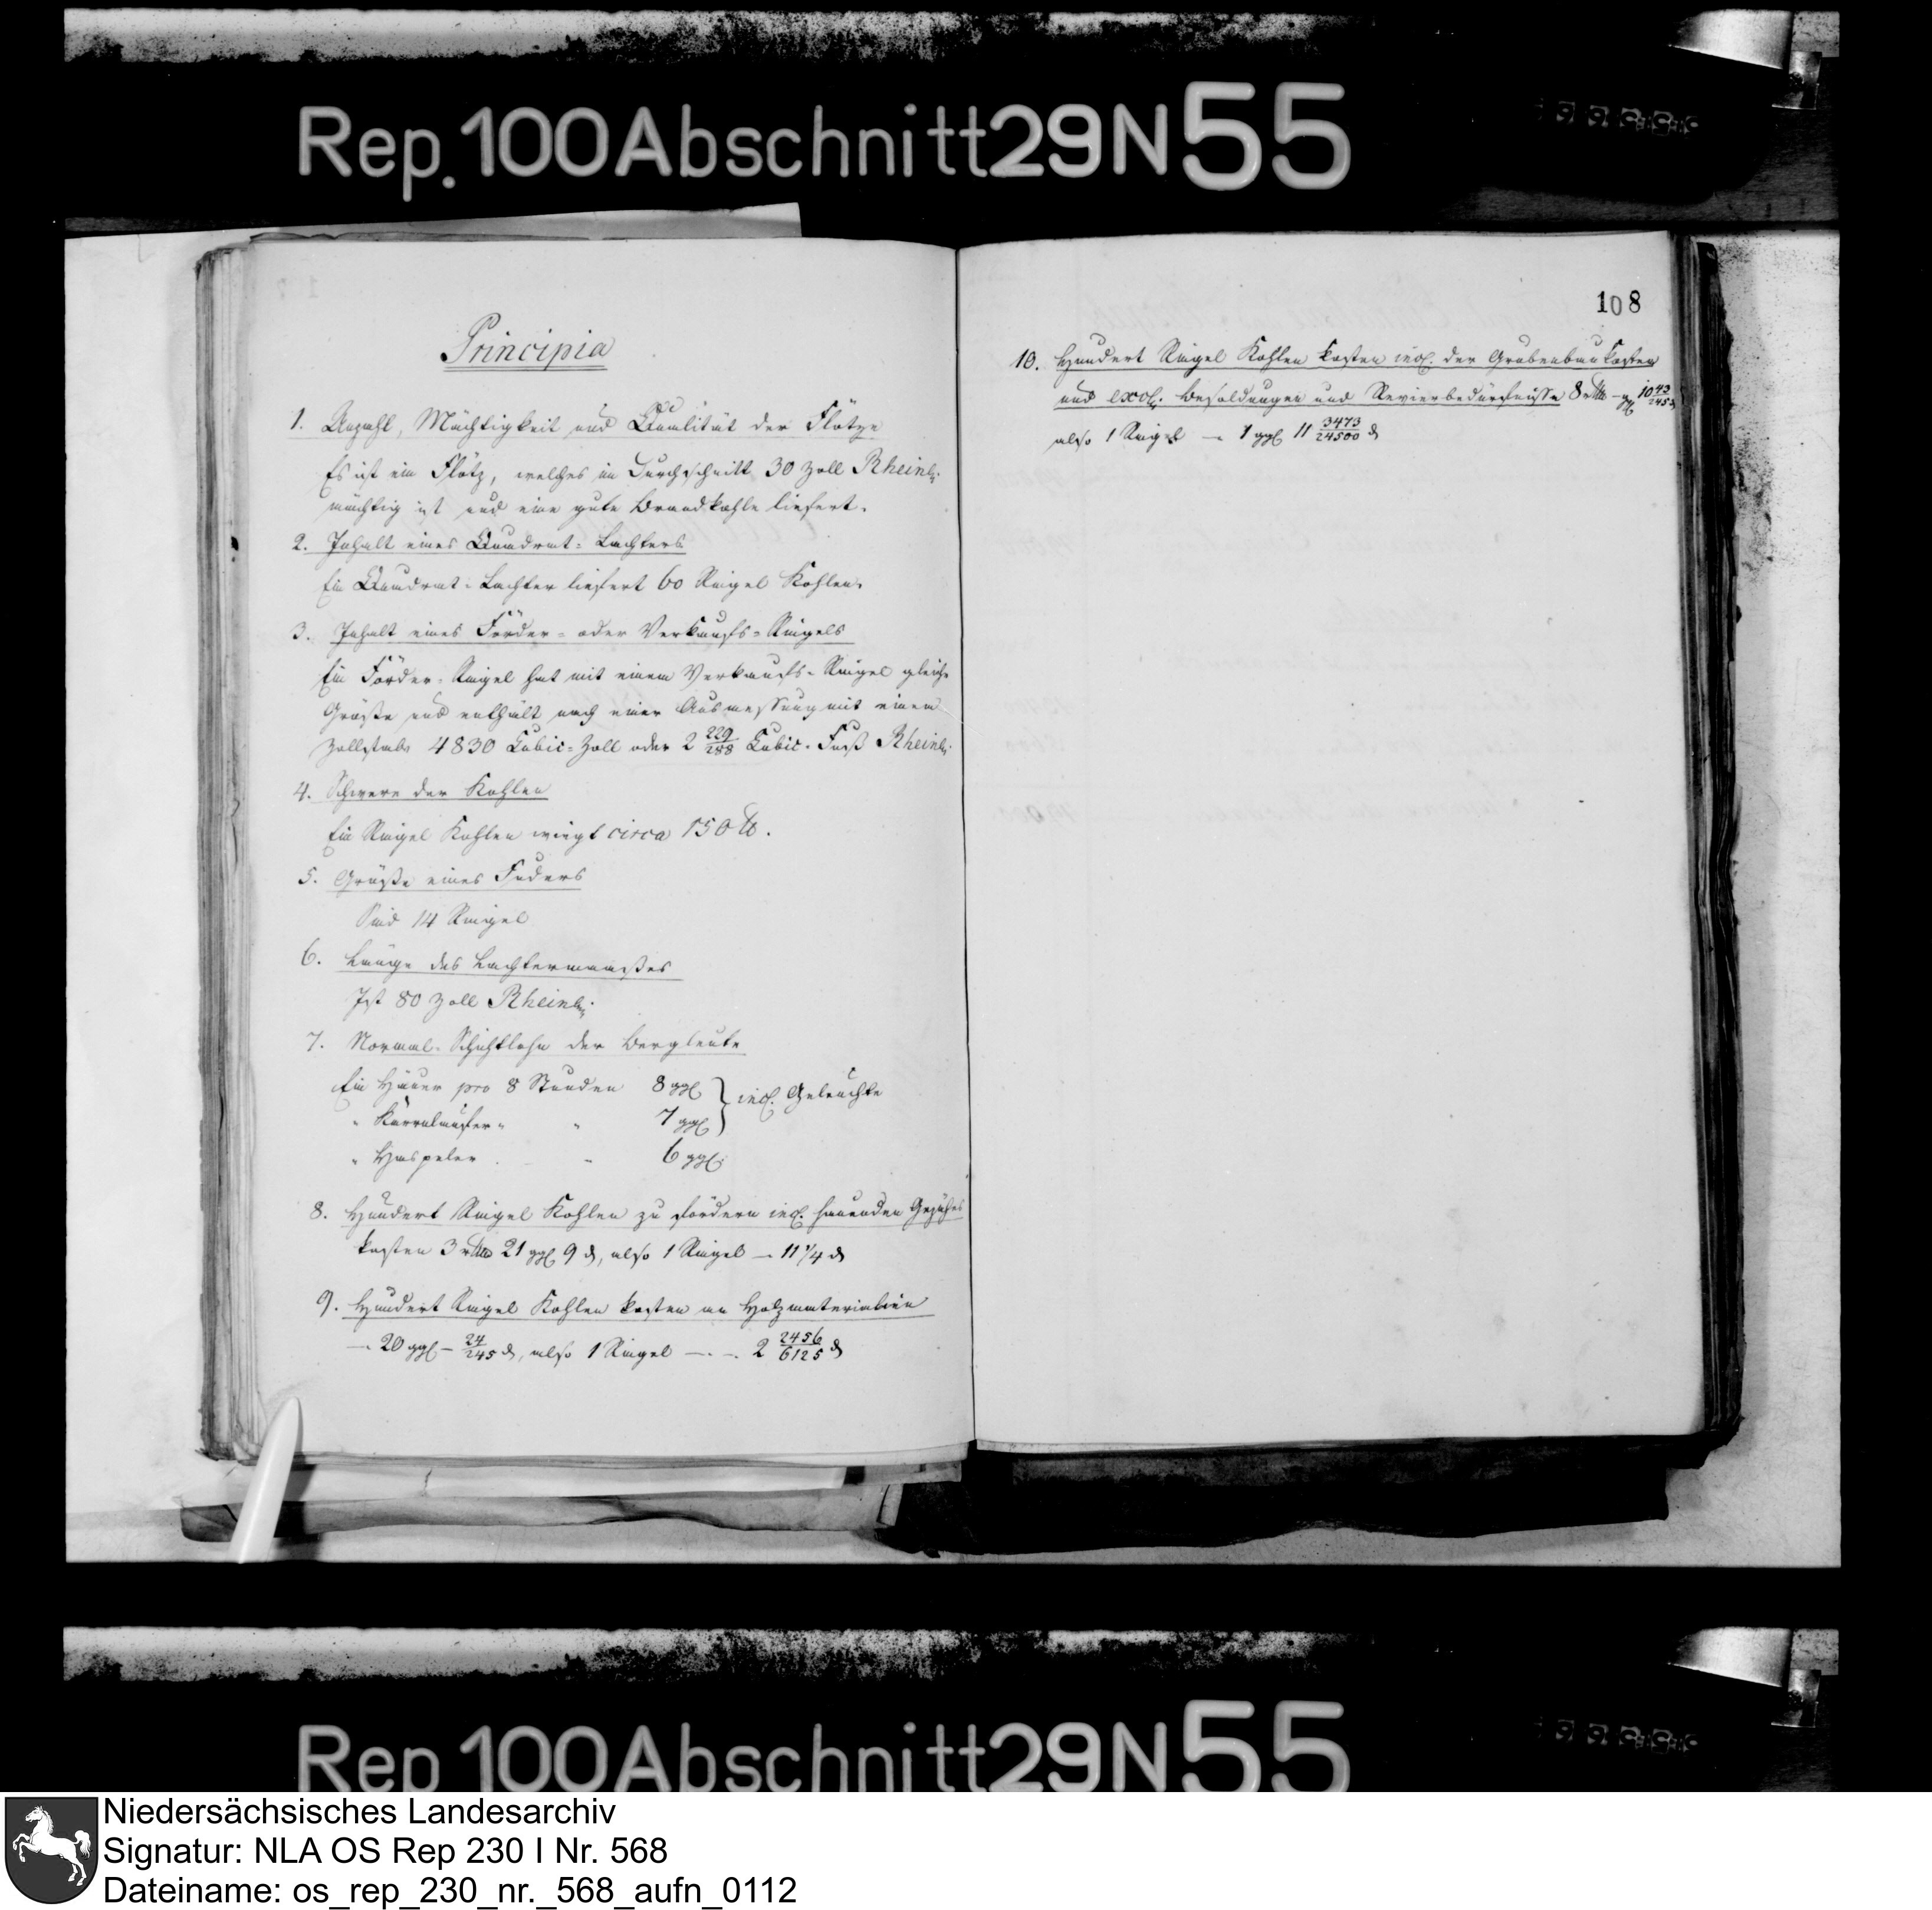 Rep.100Abschnitt29N55
Principia
1. Anzahl, Mächtigkeit und Qualität der Flötze
Es ist ein Flötz, welches im Durchschnitt 30 Zoll Rheinl.
mächtig ist und eine gute Brandkohle liefert.
2. Inhalt eines Quadrat-Lachters
Ein Quadrat-Lachter liefert 60 Ringel Kohlen.
3. Inhalt eines Förder- oder Verkaufs-Ringels
Ein Förder-Ringel hat mit einem Verkaufs-Ringel gleiche
Größe und enthält nach einer Ausmessung mit einem
Zollstabe 4830 Cubic-Zoll oder 2 229/288 Cubic-Fuß Rheinl.
4. Schwere der Kohlen
Ein Ringel Kohlen wiegt circa 150 ℔.
5. Größe eines Fuders
Sind 14 Ringel
6. Länge des Lachtermaaßes
Ist 80 Zoll Rheinl.
7. Normal-Schichtlohn der Bergleute
Ein Häuer pro 8 Stunden 8 ggl } incl. Geleuchte
" Karrnläufer " " 7 ggl
" Haspeler " 6 ggl.
8. Hundert Ringel Kohlen zu fördern incl. hauenden Gezähes
kosten 3 rthlr 21 ggl 9 ₰, also 1 Ringel — 11 1/4 ₰
9. Hundert Ringel Kohlen kosten an Holzmaterialien
— 20 ggl — 24/245 ₰, also 1 Ringel — . — . 2 2456/6125 ₰
108
10. Hundert Ringel Kohlen kosten incl. der Grubenbaukosten
und excl. Besoldungen und Revierbedürfnisse 8 rthlr — ggl 10 43/245 ₰
also 1 Ringel — 1 ggl 11 3473/24500 ₰
Rep 100Abschnitt29N55
Niedersächsisches Landesarchiv
Signatur: NLA OS Rep 230 I Nr. 568
Dateiname: os_rep_230_nr._568_aufn_0112